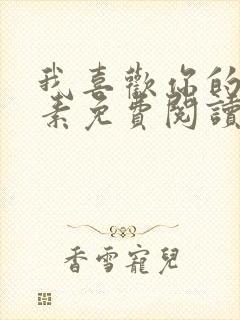 我喜歡你的
素免費閱讀
香雪寵兒